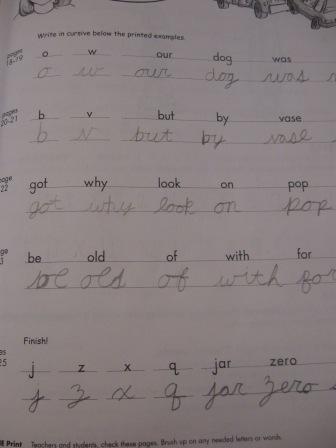 Write in cursive below the printed examples.
pages 18-19
o w our dog was
o w our dog was
pages 20-21
b v but by vase
b v but by vase
page 22
got why look on pop
got why look on pop
be old of with for
be old of with for
Finish!
j z x q jar zero
j z x q jar zero
Print Teachers and students, check these pages. Brush up on any needed letters or words.